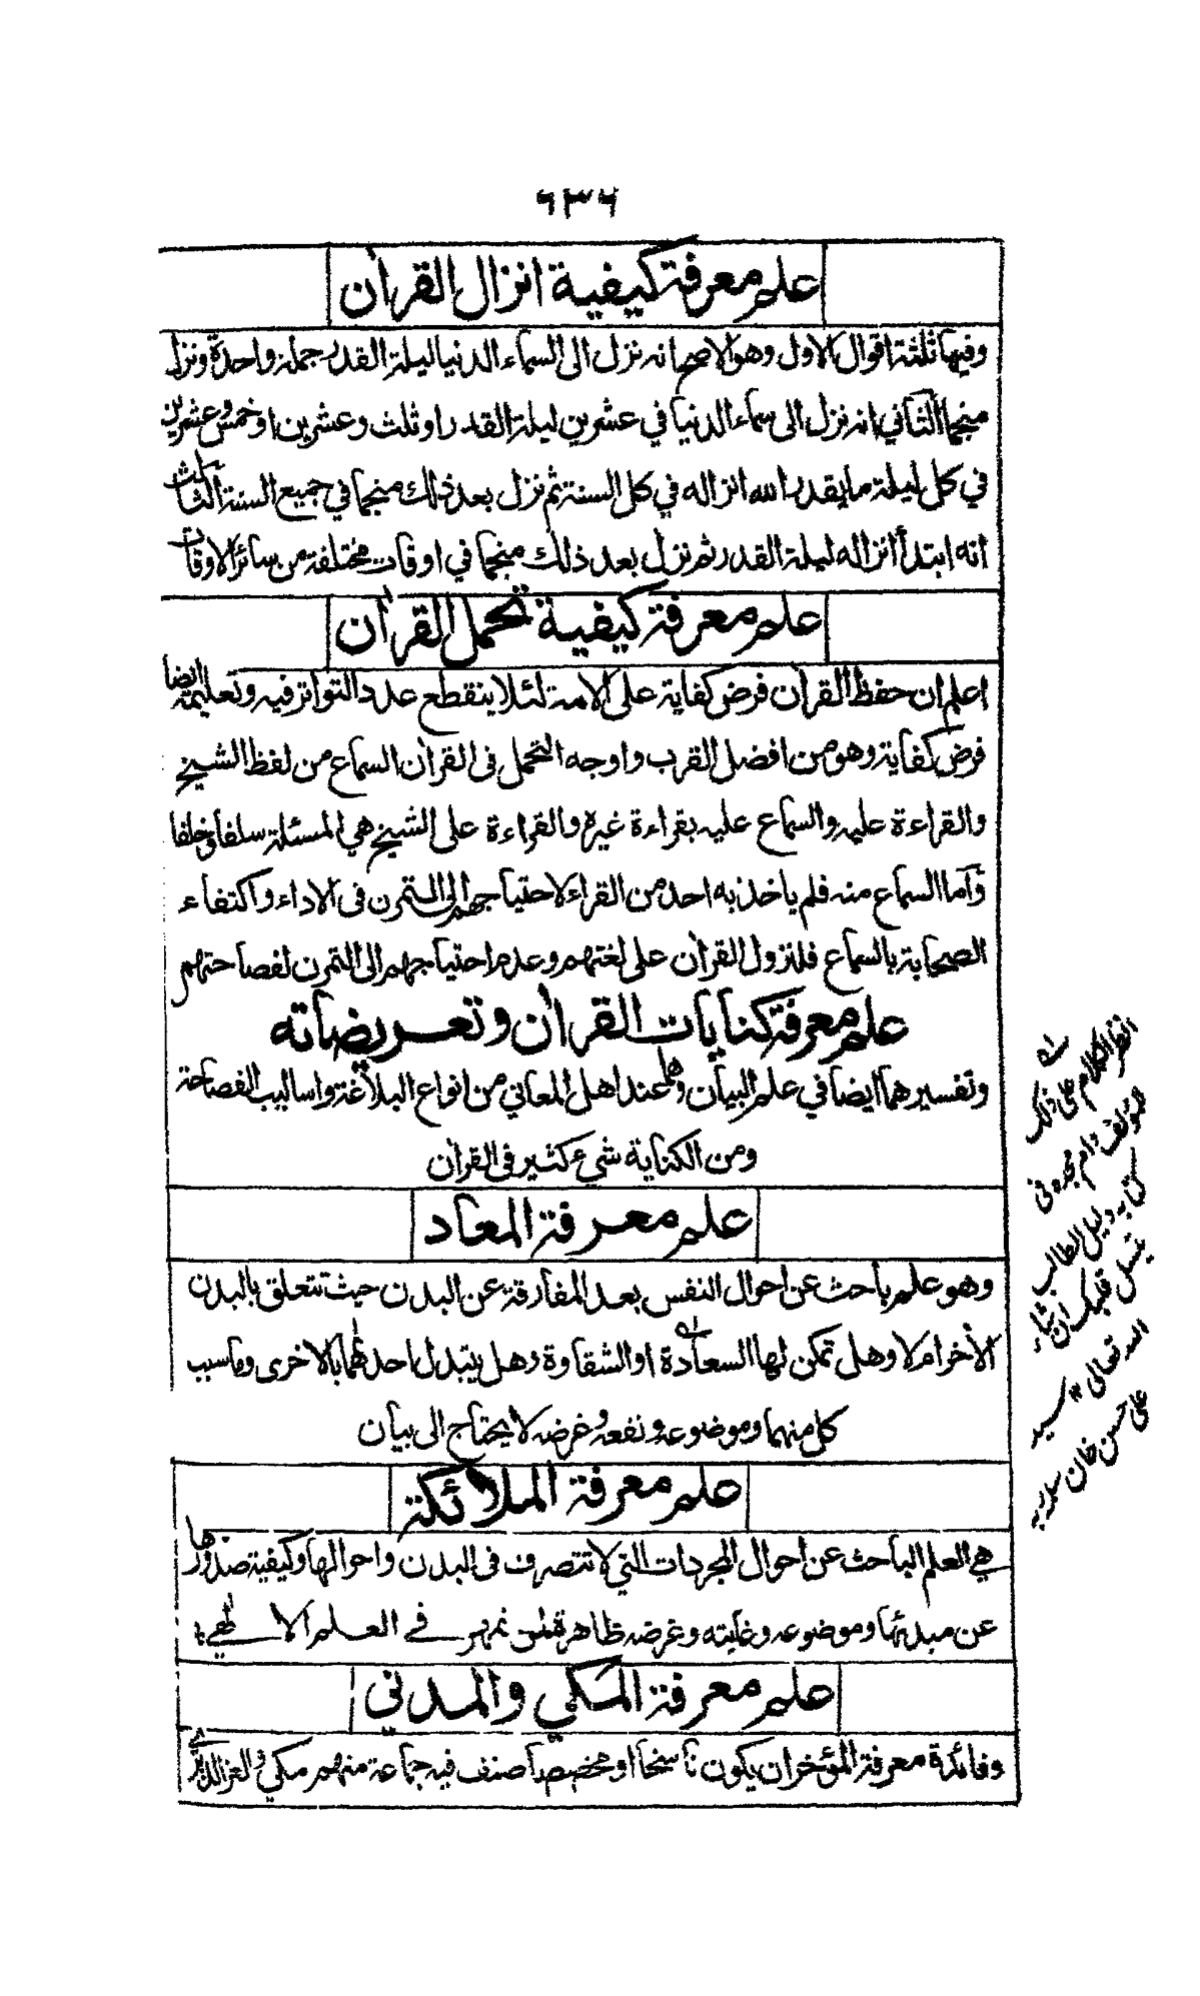 ٦٣٦
علم معرفة كيفية انزال القرآن
وفيها ثلثة اقوال الاول وهو الاصح انه نزل الى السماء الدنيا ليلة القدر جملة واحدة ونزل
منجما الثاني انه نزل الى سماء الدنيا في عشرين ليلة القدر او ثلث وعشرين او خمس وعشرين
في كل ليلة ما يقدر الله انزاله في كل السنة ثم نزل بعد ذلك منجما في جميع السنة الثالث
انه ابتدأ انزاله ليلة القدر ثم نزل بعد ذلك منجما في اوقات مختلفة من سائر الاوقات
علم معرفة كيفية تحمل القرآن
اعلم ان حفظ القرآن فرض كفاية على الامة لئلا ينقطع عدد التواتر فيه وتعليمه ايضا
فرض كفاية وهو من افضل القرب واوجه التحمل فى القرآن السماع من لفظ الشيخ
والقراءة عليه والسماع عليه بقراءة غيره والقراءة على الشيخ هي المسئلة سلفا وخلفا
وأما السماع منه فلم ياخذ به احد من القراء لاحتياجهم الى التمرن فى الاداء واكتفاء
الصحابة بالسماع فلنزول القرآن على لغتهم وعدم احتياجهم الى التمرن لفصاحتهم
علم معرفة كنايات القرآن وتعريضاته
وتفسيرهما ايضا في علم البيان وهما عند اهل المعاني من انواع البلاغة واساليب الفصاحة
ومن الكناية شيء كثير فى القرآن
علم معرفة المعاد
وهو علم باحث عن احوال النفس بعد المفارقة عن البدن حيث تتعلق بالبدن
الآخر ام لا وهل تمكن لها السعادة او الشقاوة وهل يتبدل احدهما بالاخرى وما سبب
كل منهما وموضوعه ونفعه وغرضه لا يحتاج الى بيان
علم معرفة الملائكة
هي العلم الباحث عن احوال المجردات التي لا تتصرف فى البدن واحوالها وكيفية صدورها
عن مبدئها وموضوعه وغايته وغرضه ظاهرة لمن تمهر في العلم الالهي
علم معرفة المكي والمدني
وفائدة معرفة المؤخر ان يكون ناسخا او مخصصا صنف فيه جماعة منهم مكي والعز الديريني
انظر الكلام على ذلك
لمؤلفه دام مجده في
كتابه دليل الطالب
يتسل قلبك ان شاء
الله تعالى سيد
على حسن خان سلمه ربه